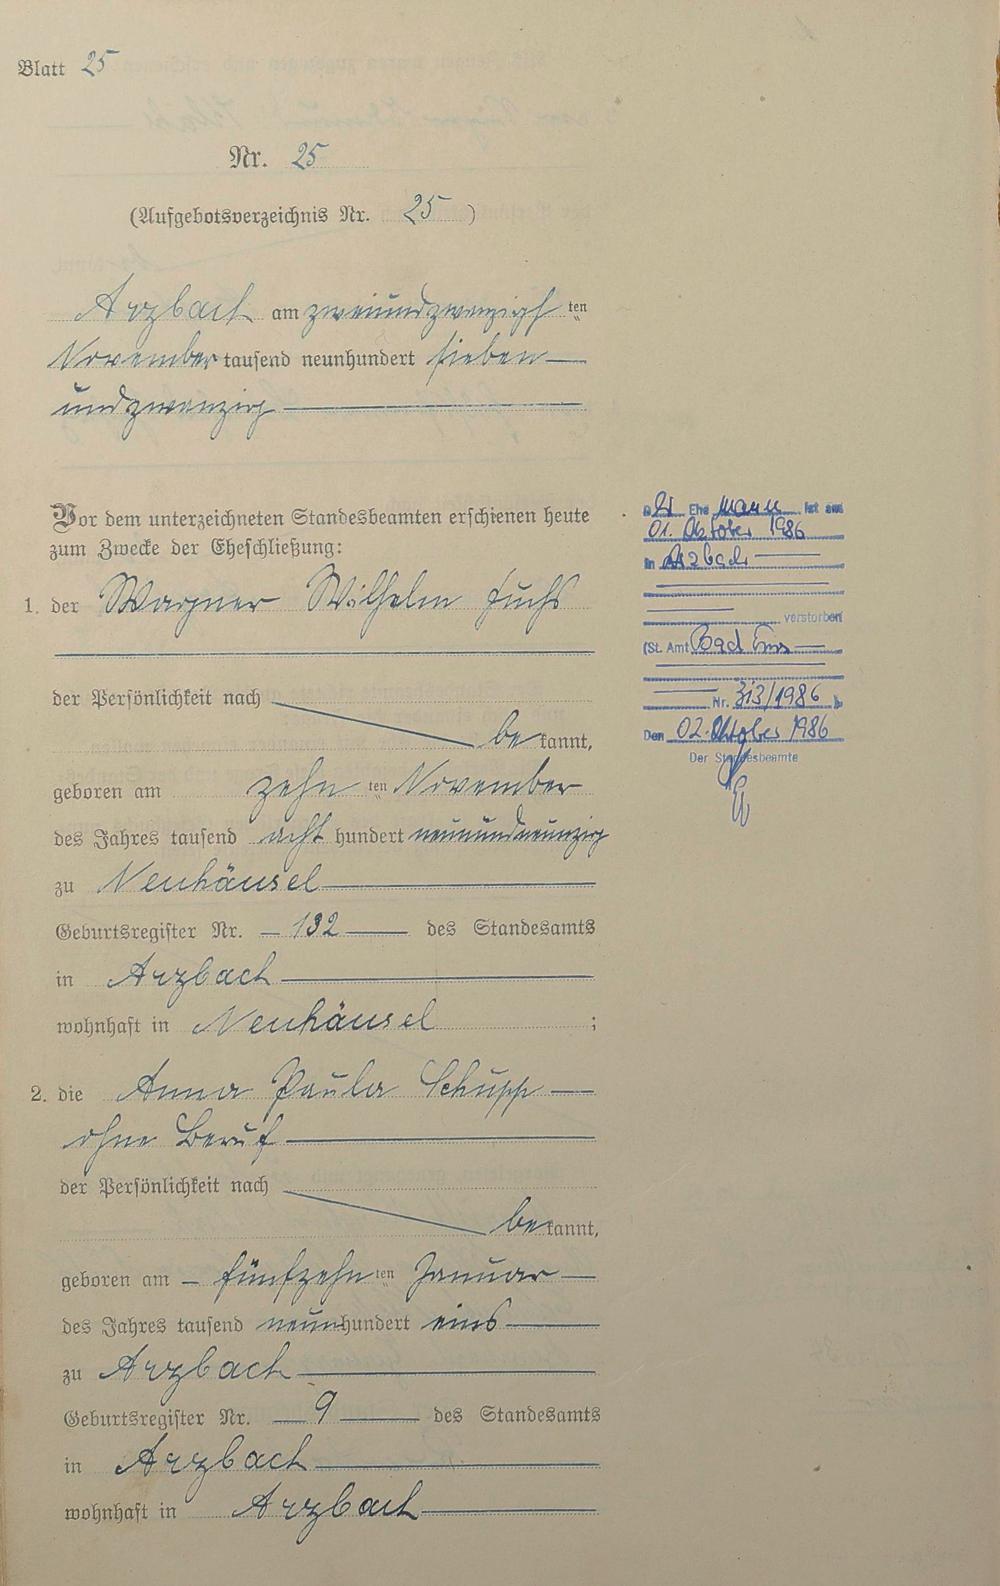 Blatt 25
Nr. 25
(Aufgebotsverzeichnis Nr. 25)
Arzbach am zweiundzwanzigsten
November tausend neunhundert sieben-
undzwanzig
Vor dem unterzeichneten Standesbeamten erschienen heute
zum Zwecke der Eheschließung:
1. der Wagner Wilhelm Fuchs
der Persönlichkeit nach
bekannt,
geboren am zehnten November
des Jahres tausend achthundert neunundneunzig
zu Neuhäusel
Geburtsregister Nr. 132 des Standesamts
in Arzbach
wohnhaft in Neuhäusel ;
2. die Anna Paula Schupp
ohne Beruf
der Persönlichkeit nach
bekannt,
geboren am fünfzehnten Januar
des Jahres tausend neunhundert eins
zu Arzbach
Geburtsregister Nr. 9 des Standesamts
in Arzbach
wohnhaft in Arzbach
Der Ehemann ist am
01. Oktober 1986
in Arzbach
verstorben
(St. Amt Bad Ems
Nr. 313/1986 ).
Den 02. Oktober 1986
Der Standesbeamte